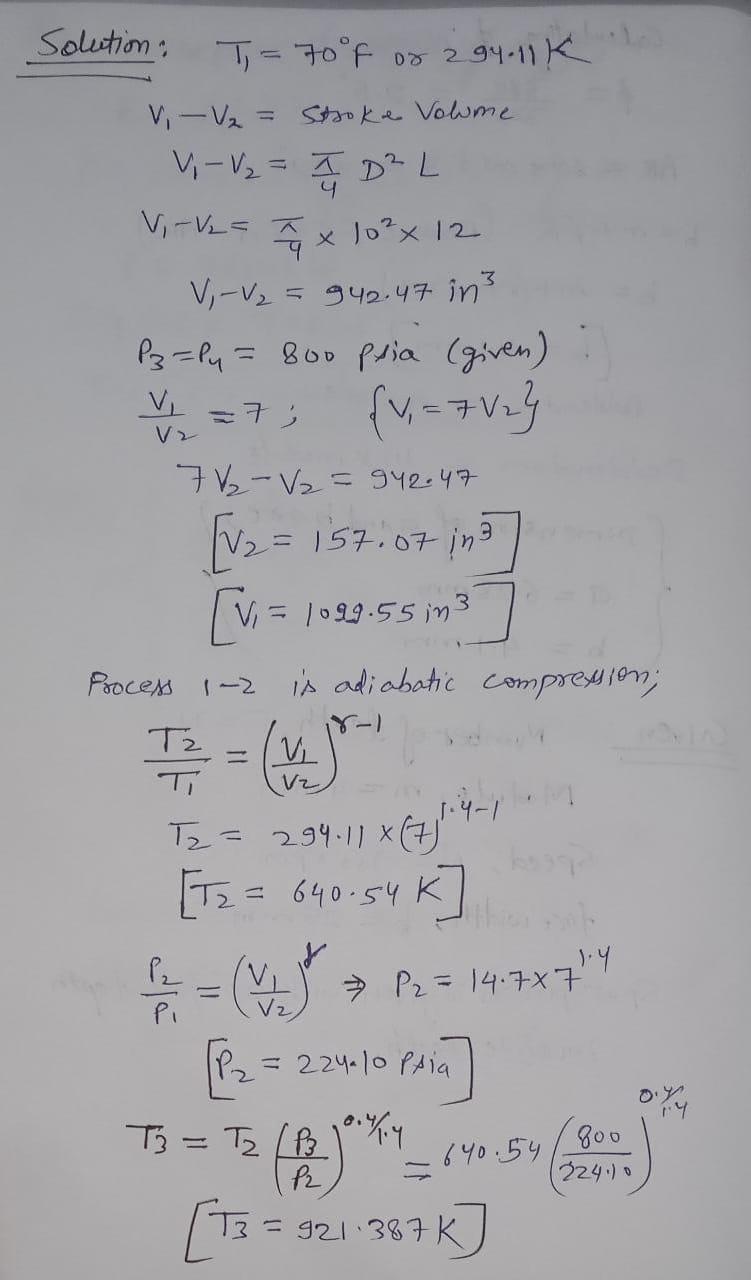 Solution: T₁ = 70°F or 294.11 K
V₁ - V₂ = Stroke Volume
V₁ - V₂ = π/4 D² L
V₁ - V₂ = π/4 × 10² × 12
V₁ - V₂ = 942.47 in³
P₃ = P₄ = 800 psia (given)
V₁/V₂ = 7 ; {V₁ = 7V₂}
7V₂ - V₂ = 942.47
[V₂ = 157.07 in³]
[V₁ = 1099.55 in³]
Process 1-2 is adiabatic compression;
T₂/T₁ = (V₁/V₂)^γ-1
T₂ = 294.11 × (7)^1.4-1
[T₂ = 640.54 K]
P₂/P₁ = (V₁/V₂)^γ ⇒ P₂ = 14.7 × 7^1.4
[P₂ = 224.10 Psia]
T₃ = T₂ (P₃/P₂)^0.4/1.4 = 640.54 (800/224.10)^0.4/1.4
[T₃ = 921.387 K]